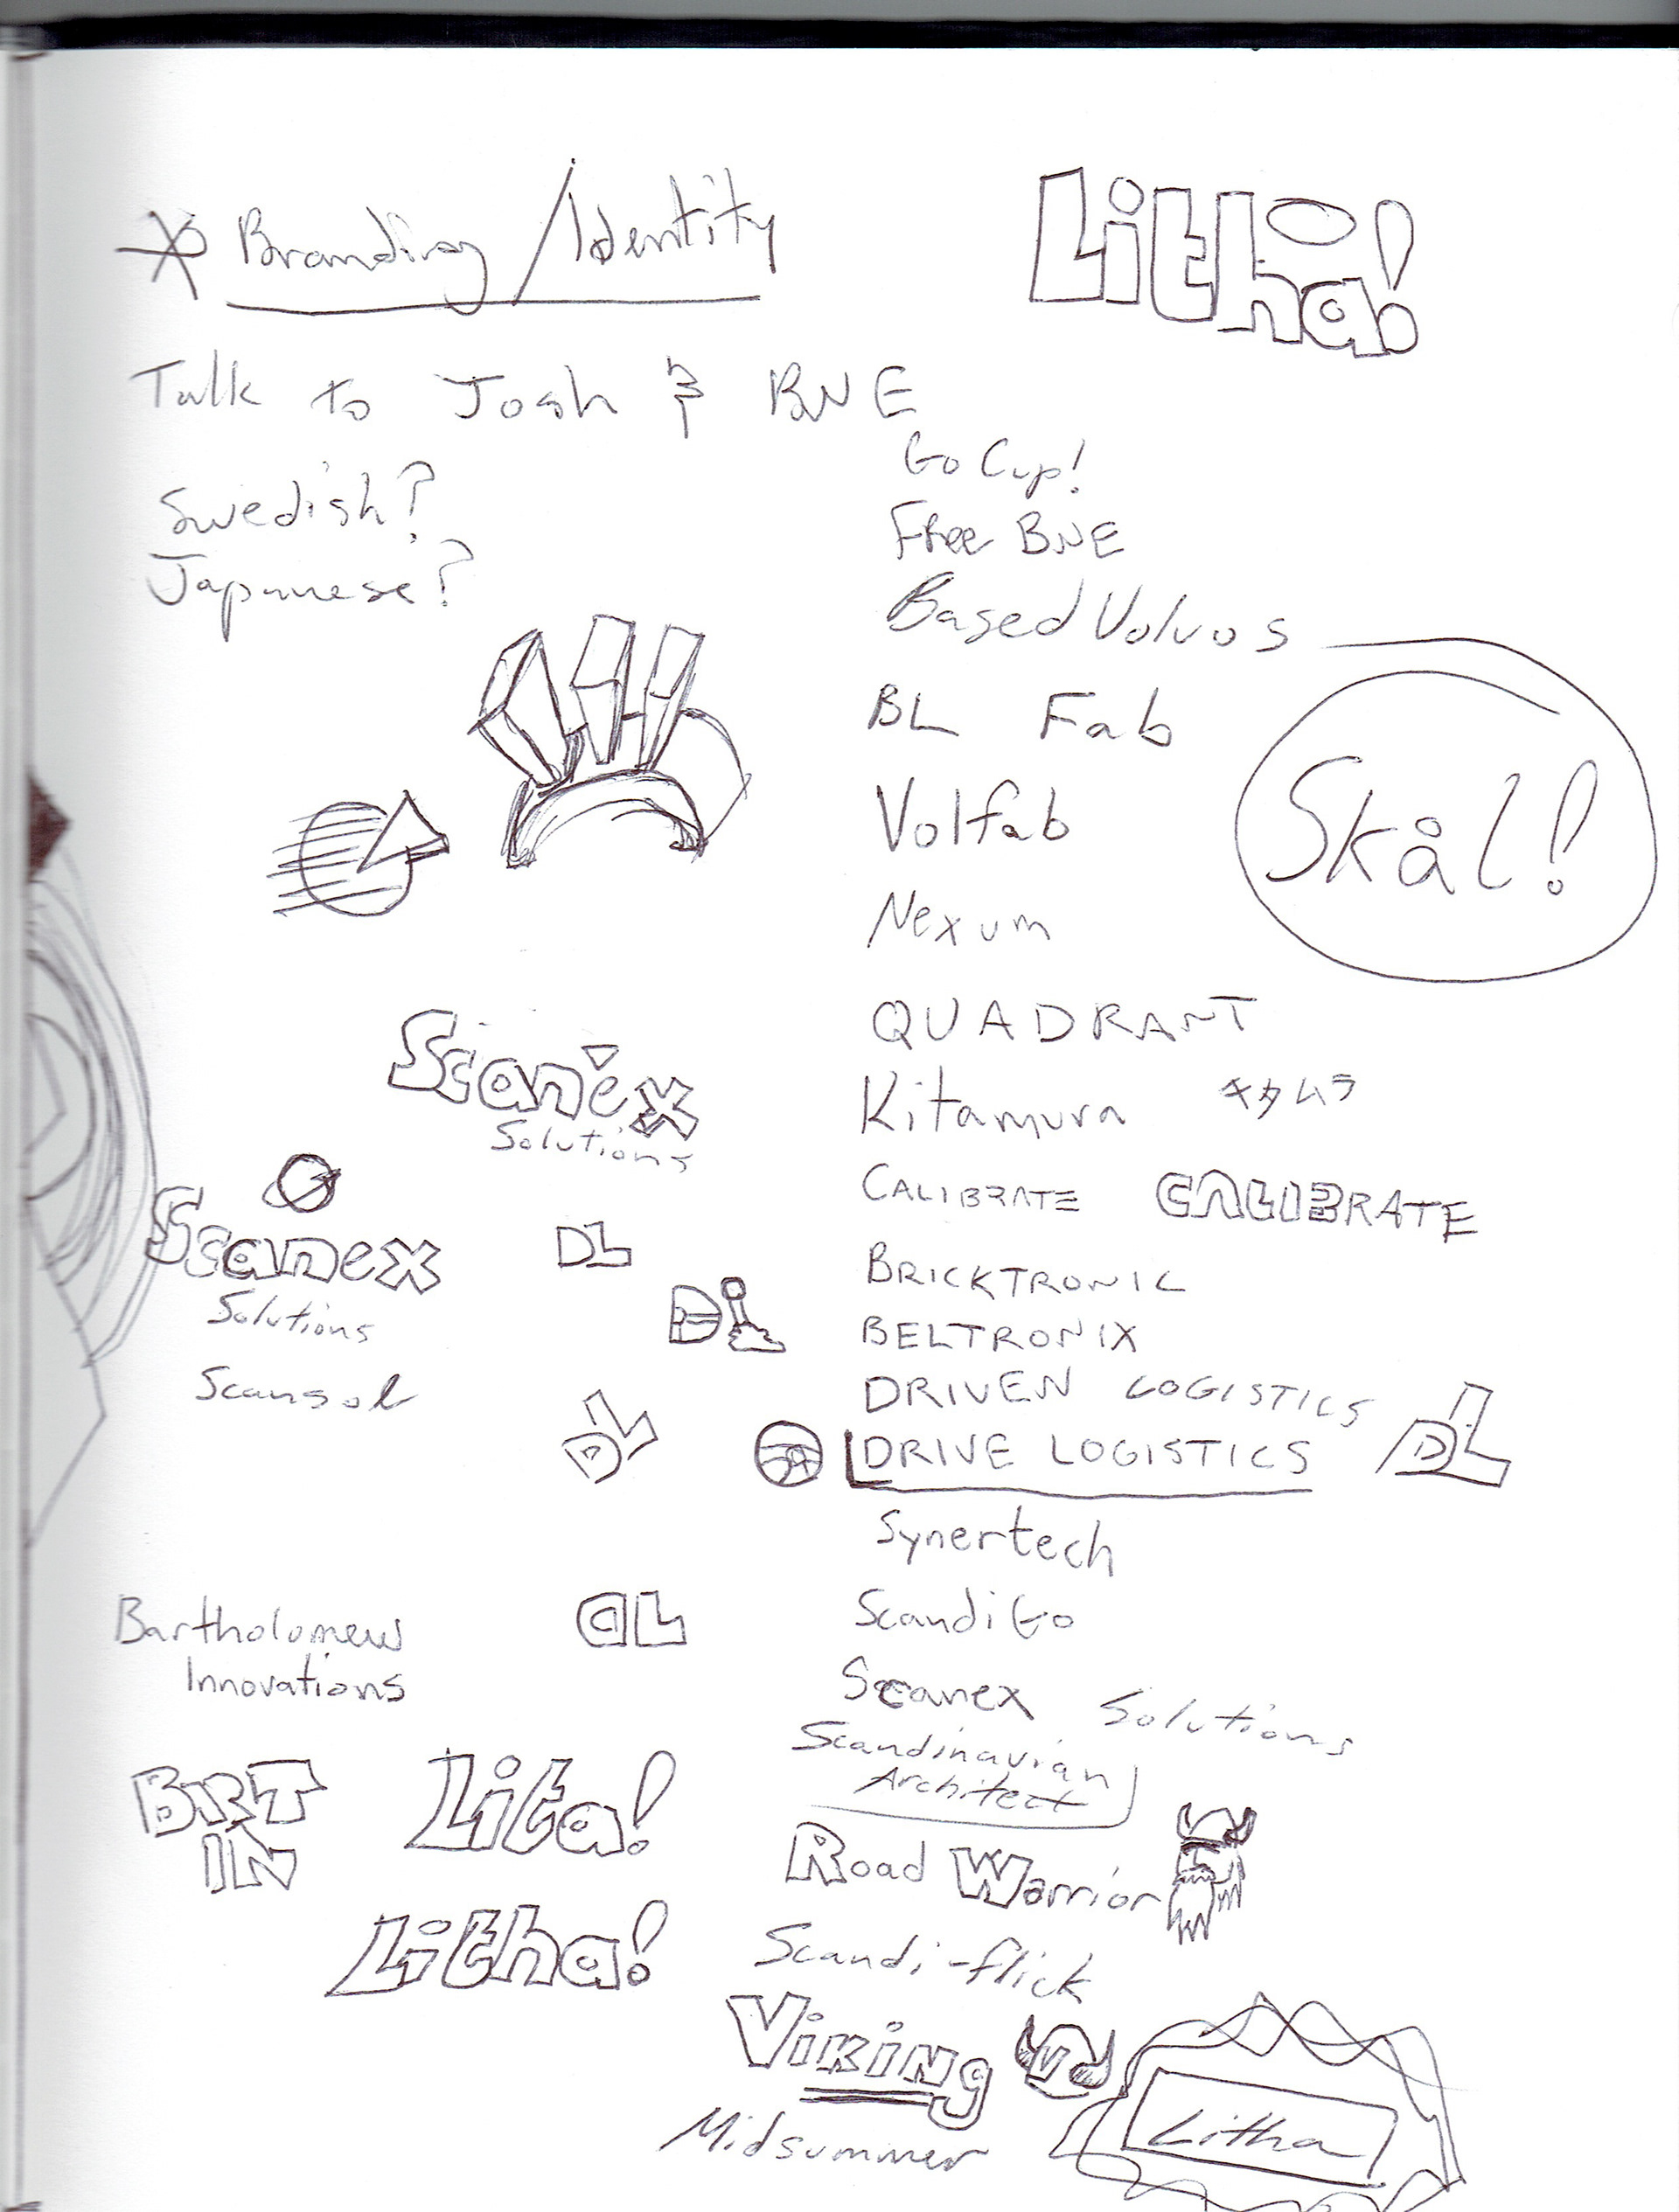 Branding/Identity
Litha!
Talk to Josh & BNE
Go Cup!
Swedish?
Free BNE
Japanese?
Based Volvos
BL Fab
Skål!
Volfab
Nexum
QUADRANT
Scanex
Solutions
Kitamura キタムラ
CALIBRATE CALIBRATE
Scanex
Solutions
DL
BRICKTRONIC
DL
BELTRONIX
Scansol
DRIVEN LOGISTICS
DL
DRIVE LOGISTICS
DL
Synertech
Bartholomew
Innovations
DL
ScandiGo
Scanex Solutions
Scandinavian
Architect
BRT
IN
Lita!
Road Warrior
Litha!
Scandi-flick
Viking
V
Litha
Midsummer